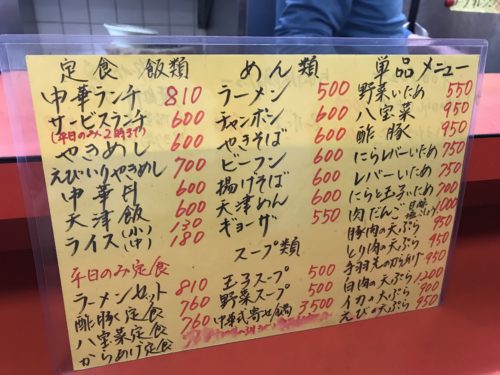 定食飯類
中華ランチ 810
サービスランチ 600
(平日のみ2時まで)
やきめし 600
えびいりやきめし 700
中華丼 600
天津飯 600
ライス(小) 130
(中) 180
平日のみ定食
ラーメンセット 810
酢豚定食 760
八宝菜定食 760
からあげ定食
めん類
ラーメン 500
チャンポン 600
やきそば 600
ビーフン 600
揚げそば 600
天津めん 600
ギョーザ 550
スープ類
玉子スープ 500
野菜スープ 500
中華式寄せ鍋 3,500
単品メニュー
野菜いため 550
八宝菜 950
酢豚 950
にらレバーいため 750
レバーいため 750
にらと玉子いため 700
肉だんご 1000
豚肉の天ぷら 950
とり肉の天ぷら 950
手羽先のからあげ 950
白肉の天ぷら 1200
イカの天ぷら 900
えびの天ぷら 950